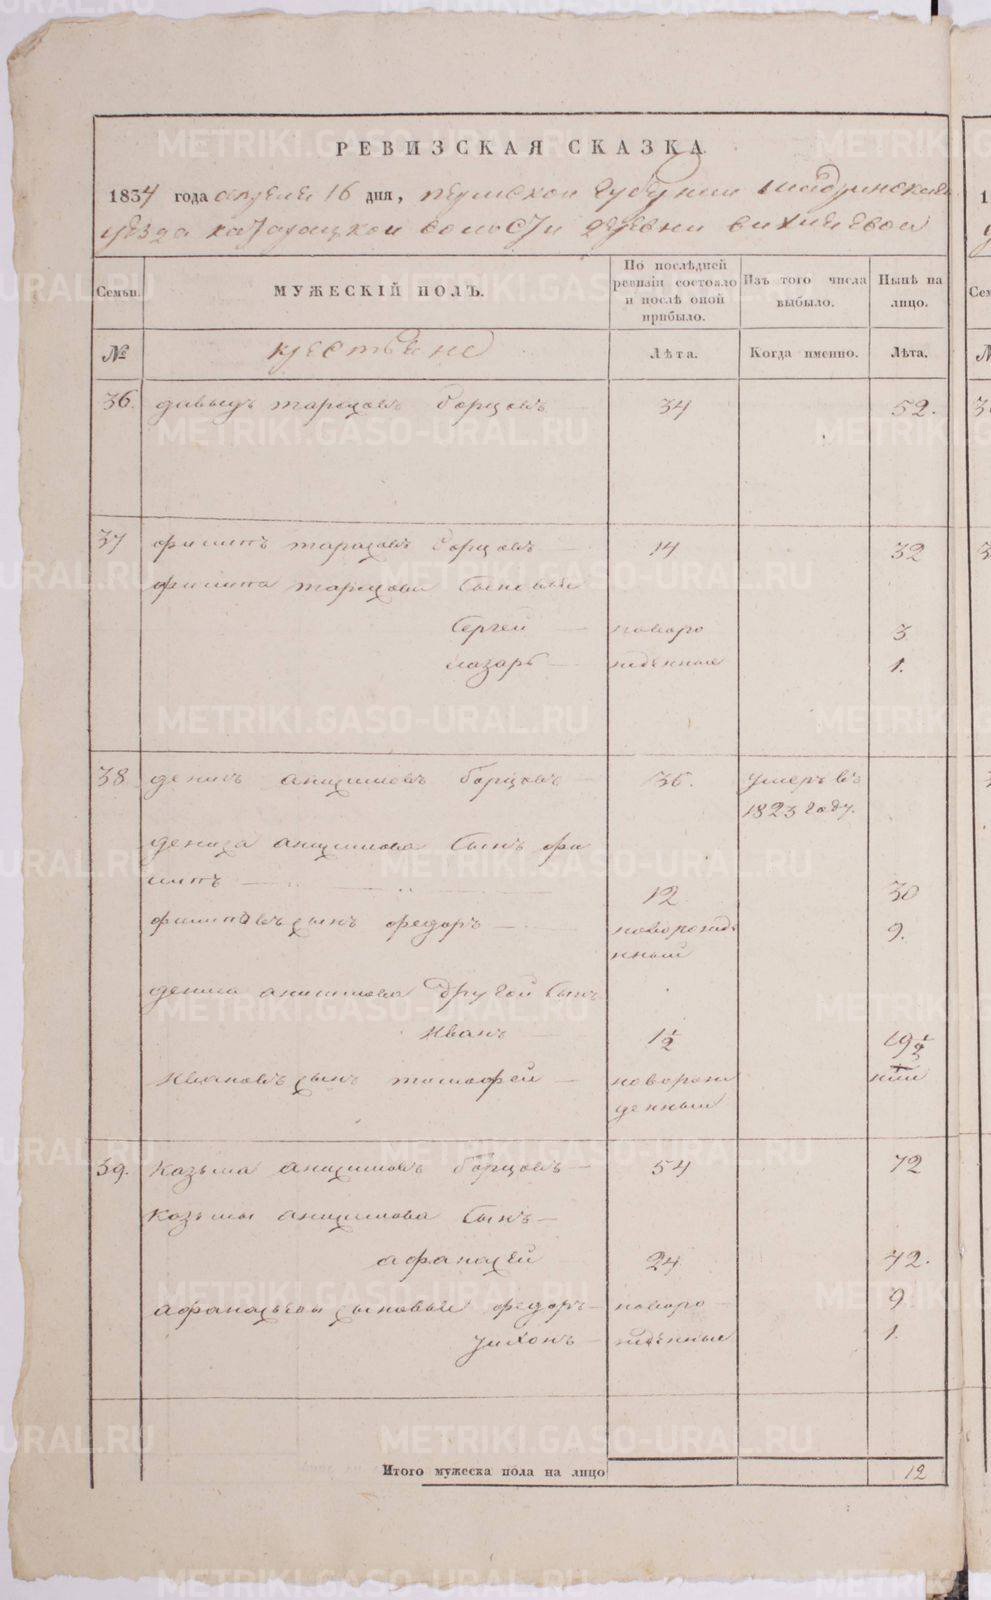 РЕВИЗСКАЯ СКАЗКА
1834 года апреля 16 дня, пермской губернии шадринскаго
уезда катарацкой волости деревни вихляевой
Семьи.
МУЖЕСКІЙ ПОЛЪ.
По послѣдней ревизіи состояло и послѣ оной прибыло.
Изъ того числа выбыло.
Нынѣ на лицо.
№
крестьяне
Лѣта.
Когда именно.
Лѣта.
36. давыдъ тарасовъ борцовъ 34 52.
37 филипъ тарасовъ борцовъ 14 32
филипа тарасова сыновьи
Сергей новоро 3
лазарь жденные 1.
38 денисъ анисимовъ борцовъ 36. умеръ въ
1823 году.
дениса анисимова сынъ фи
липъ 12 30
филиповъ сынъ федоръ новорожд 9.
нный
дениса анисимова другой сынъ
Иванъ 1½ 19½
Ивановъ сынъ тимофей новорож ний
денный
39. Козьма анисимовъ борцовъ 54 72
Козьмы анисимова сынъ
афанасей 24 42.
афанасьевы сыновьи федоръ новоро 9
жденные 1.
Итого мужеска пола на лицо 12
METRIKI.GASO-URAL.RU